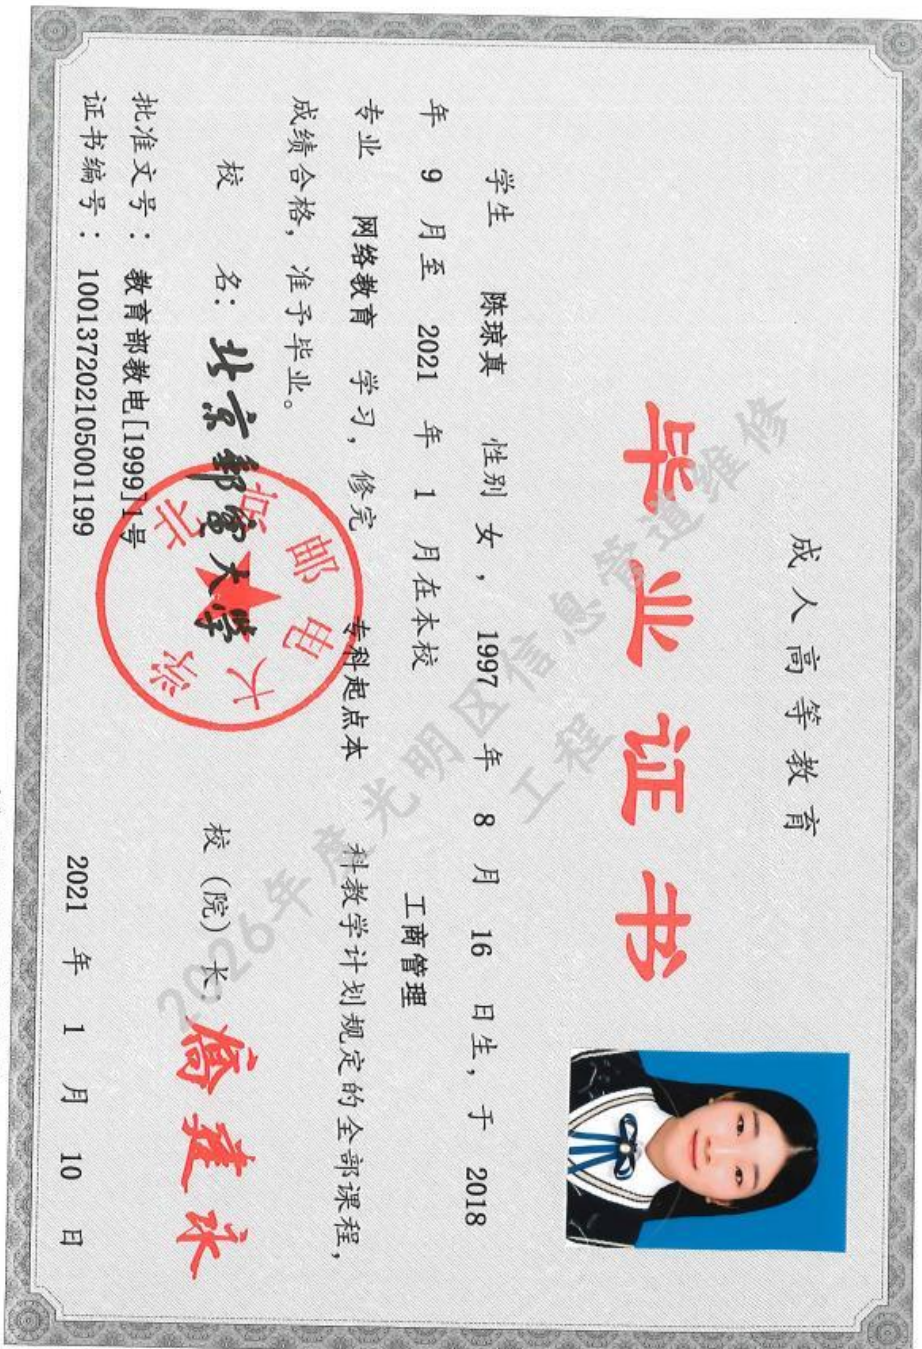 成人高等教育
毕业证书
学生 陈琼真 性别 女 ， 1997 年 8 月 16 日生，于 2018
年 9 月至 2021 年 1 月在本校 工商管理
专业 网络教育 学习，修完 专科起点本 科教学计划规定的全部课程，
成绩合格，准予毕业。
校 名：北京邮电大学 校（院）长：乔建永
北京邮电大学
批准文号：教育部教电[1999]1号
证书编号：100137202105001199 2021 年 1 月 10 日
2026年度光明区信息管道维修
工程